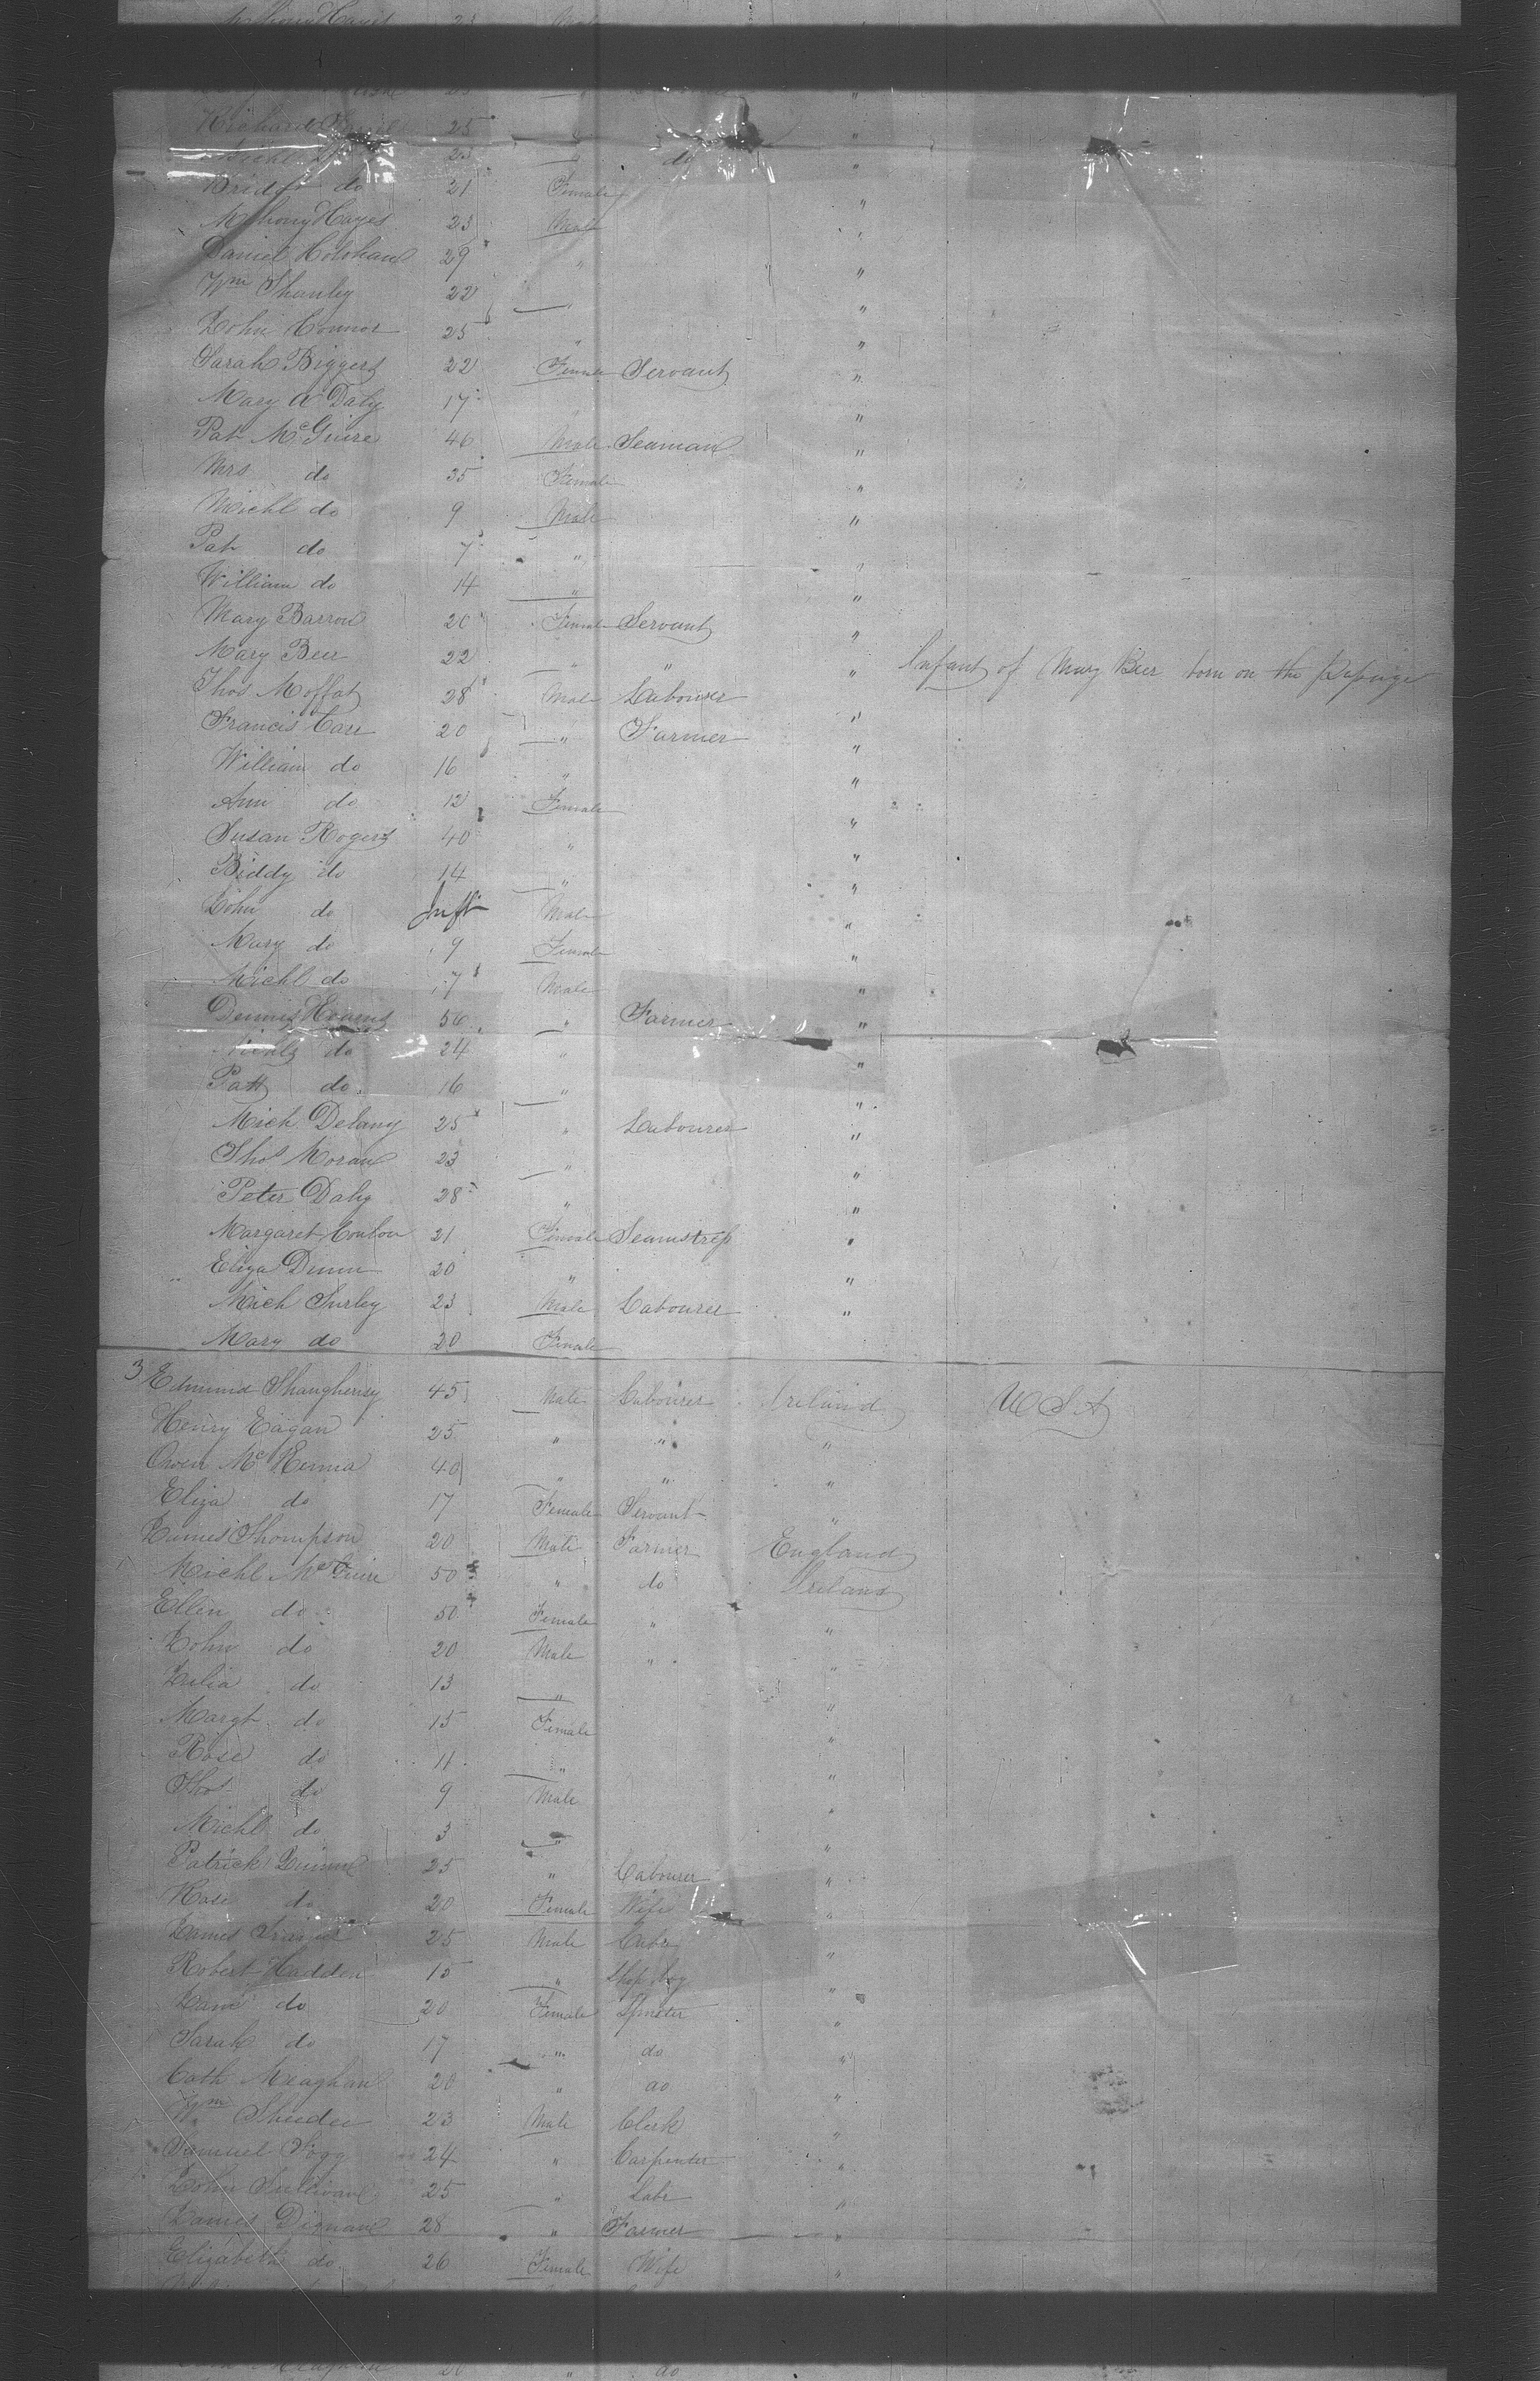 Richard 25 "
23 " do "
Bridgt do 21 Female "
Anthony Hayes 23 Male "
Daniel Holohan 29 " "
Wm Shanley 22 " "
John Connor 25 " "
Sarah Biggers 22 Female Servant "
Mary A Daly 17 " "
Pat McGuire 46 Male Seaman "
Mrs do 35 Female "
Michl do 9 Male "
Pat do 7 " "
William do 14 " "
Mary Barron 20 Female Servant "
Mary Beer 22 " " " Infant of Mary Beer born on the Passage
Thos Moffat 28 Male Labourer "
Francis Carr 20 " Farmer "
William do 16 " "
Ann do 12 Female "
Susan Rogers 40 " "
Biddy do 14 " "
John do Inft Male "
Mary do 9 Female "
Michl do 7 Male "
Dennis 50 " Farmer "
do 24 " "
Patt do 16 " "
Mich Delany 25 " Labourer "
Thos Moran 23 " "
Peter Daly 28 " "
Margaret Conlon 21 Female Seamstress "
Eliza Dunn 20 " "
Mich Turley 23 Male Labourer "
Mary do 20 Female
3 Edmund Shaughnesy 45 Male Labourer Ireland USA
Henry Eagan 25 " " "
Owen McKenna 40 " " "
Eliza do 17 Female Servant "
James Thompson 20 Male Farmer England
Michl McGuire 50 " do Ireland
Ellen do 50 Female " "
John do 20 Male " "
Julia do 13 " "
Margt do 15 Female "
Rose do 11 " "
Thos do 9 Male "
Michl do 3 " "
Patrick Quinn 25 " Labourer "
Rose do 20 Female Wife "
James 25 Male Labr "
Robert Hadden 15 " Shop boy "
Jane do 20 Female Spinster "
Sarah do 17 " do "
Cath Meaghan 20 " do "
Wm 23 Male Clerk "
Samuel Fogg 24 " Carpenter "
John Sullivan 25 " Labr "
James Dignan 28 " Farmer "
Elizabeth do 26 Female Wife "
20 " do